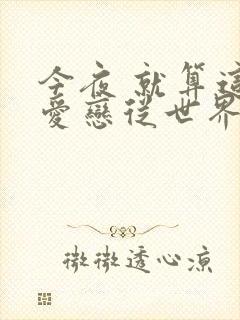 今夜 就算這
愛戀從世界
微微透心涼